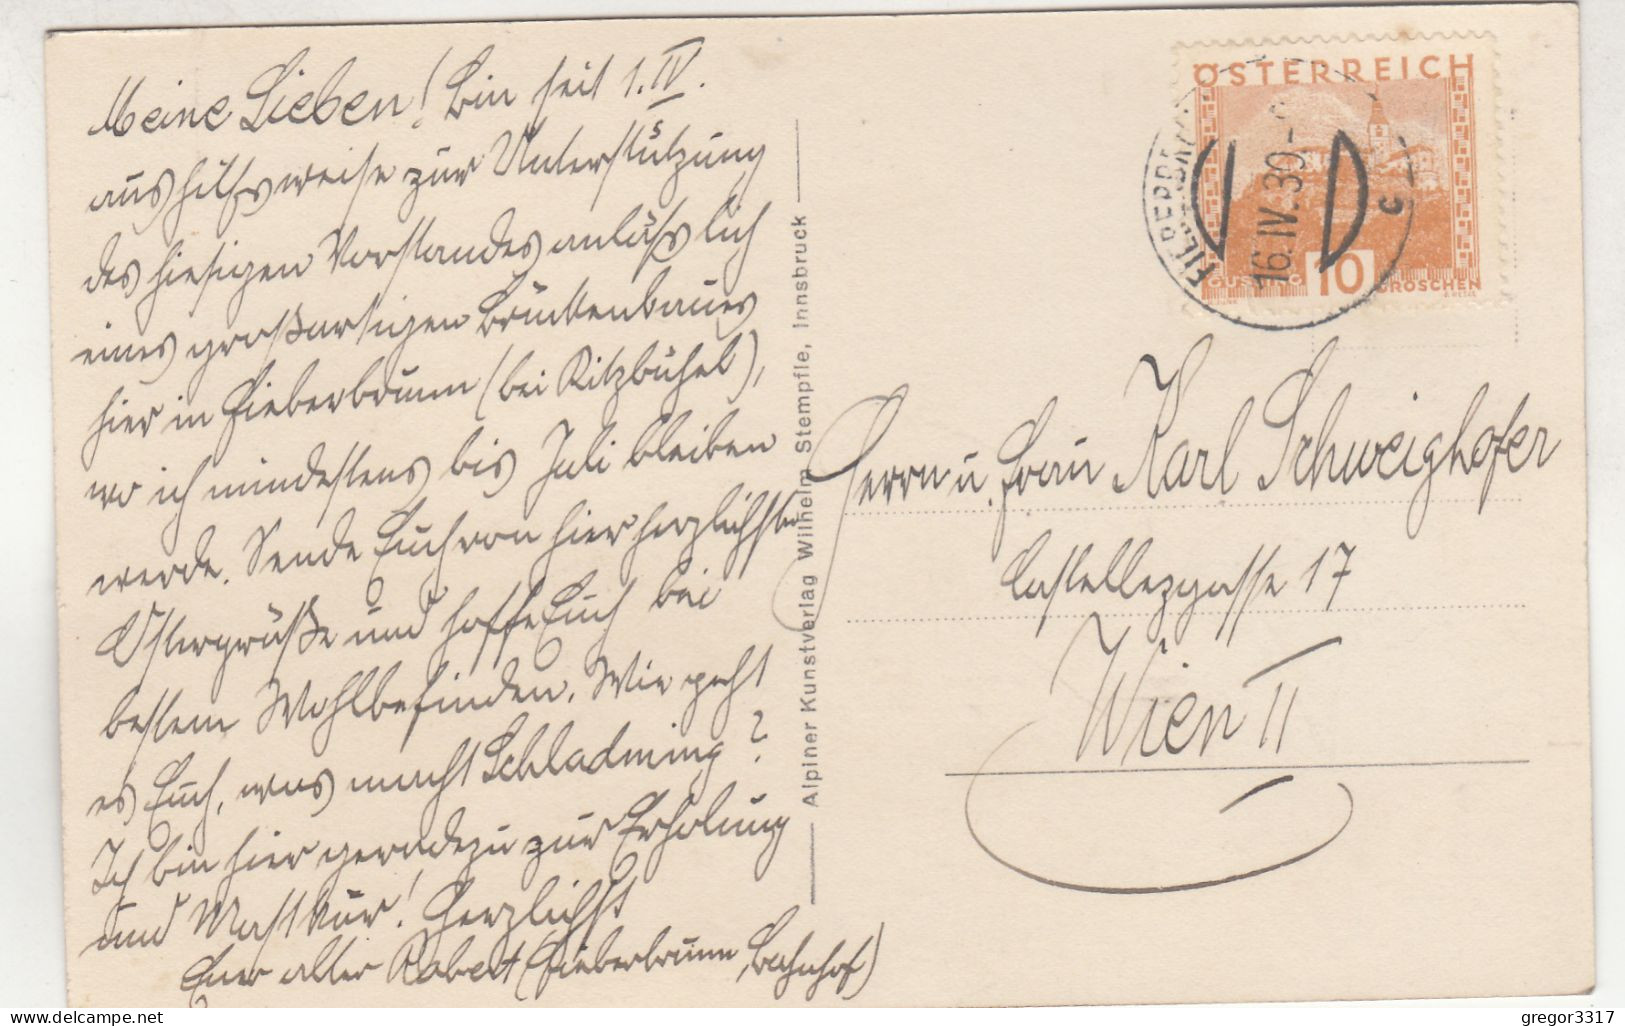 Meine Lieben! Bin seit 1. IV.
aushilfsweise zur Unterstützung
des hiesigen Vorstandes anläßlich
eines großartigen Brückenbaues
hier in Fieberbrunn (bei Kitzbühel),
wo ich mindestens bis Juli bleiben
werde. Sende Euch von hier herzlichste
Ostergrüße und hoffe Euch bei
bestem Wohlbefinden. Wie geht
es Euch, was macht Schladming?
Ich bin hier geradezu zur Erholung
und Mastkur! Herzlichst
Euer aller Robert (Fieberbrunn, Bahnhof)
Alpiner Kunstverlag Wilhelm Stempfle, Innsbruck
ÖSTERREICH
GÜSSING
10
GROSCHEN
16.IV.30
c
Herrn u. Frau Karl Schweighofer
Castellezgasse 17
Wien II
gregor3317
delcampe.net